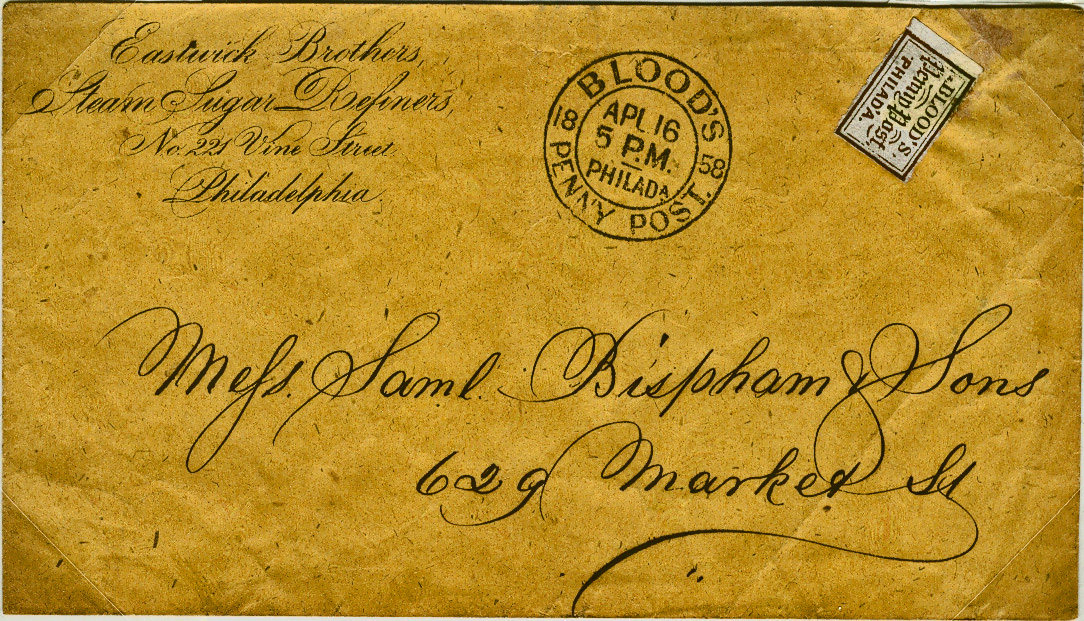 Eastwick Brothers,
Steam Sugar Refiners,
No. 221 Vine Street
Philadelphia.
BLOOD'S
18 APL 16 58
5 P.M.
PHILADA
PENNY POST.
BLOOD'S
Penny Post
PHILADA.
Mess. Saml. Bispham & Sons
629 Market St